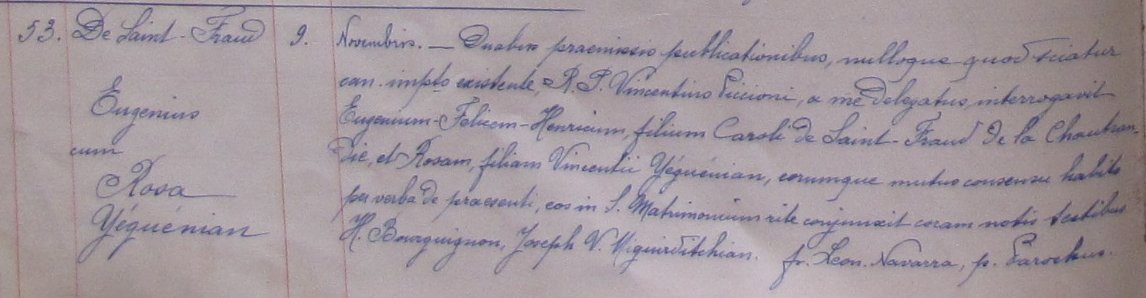 53. De Saint-Fraud
Eugenius
cum
Rosa
Yéguénian
9. Novembris. — Duabus praemissis publicationibus, nulloque quod sciatur
can. impto existente, R. P. Vincentius Piccioni, a me delegatus, interrogavit
Eugenium-Felicem-Henricum, filium Caroli de Saint-Fraud de la Chautran-
die, et Rosam, filiam Vincentii Yéguénian, eorumque mutuo consensu habito
per verba de praesenti, eos in S. Matrimonium rite conjunxit coram notis testibus
H. Bourguignon, Joseph V. Meguirditchian. fr. Leon. Navarra, p. Parochus.